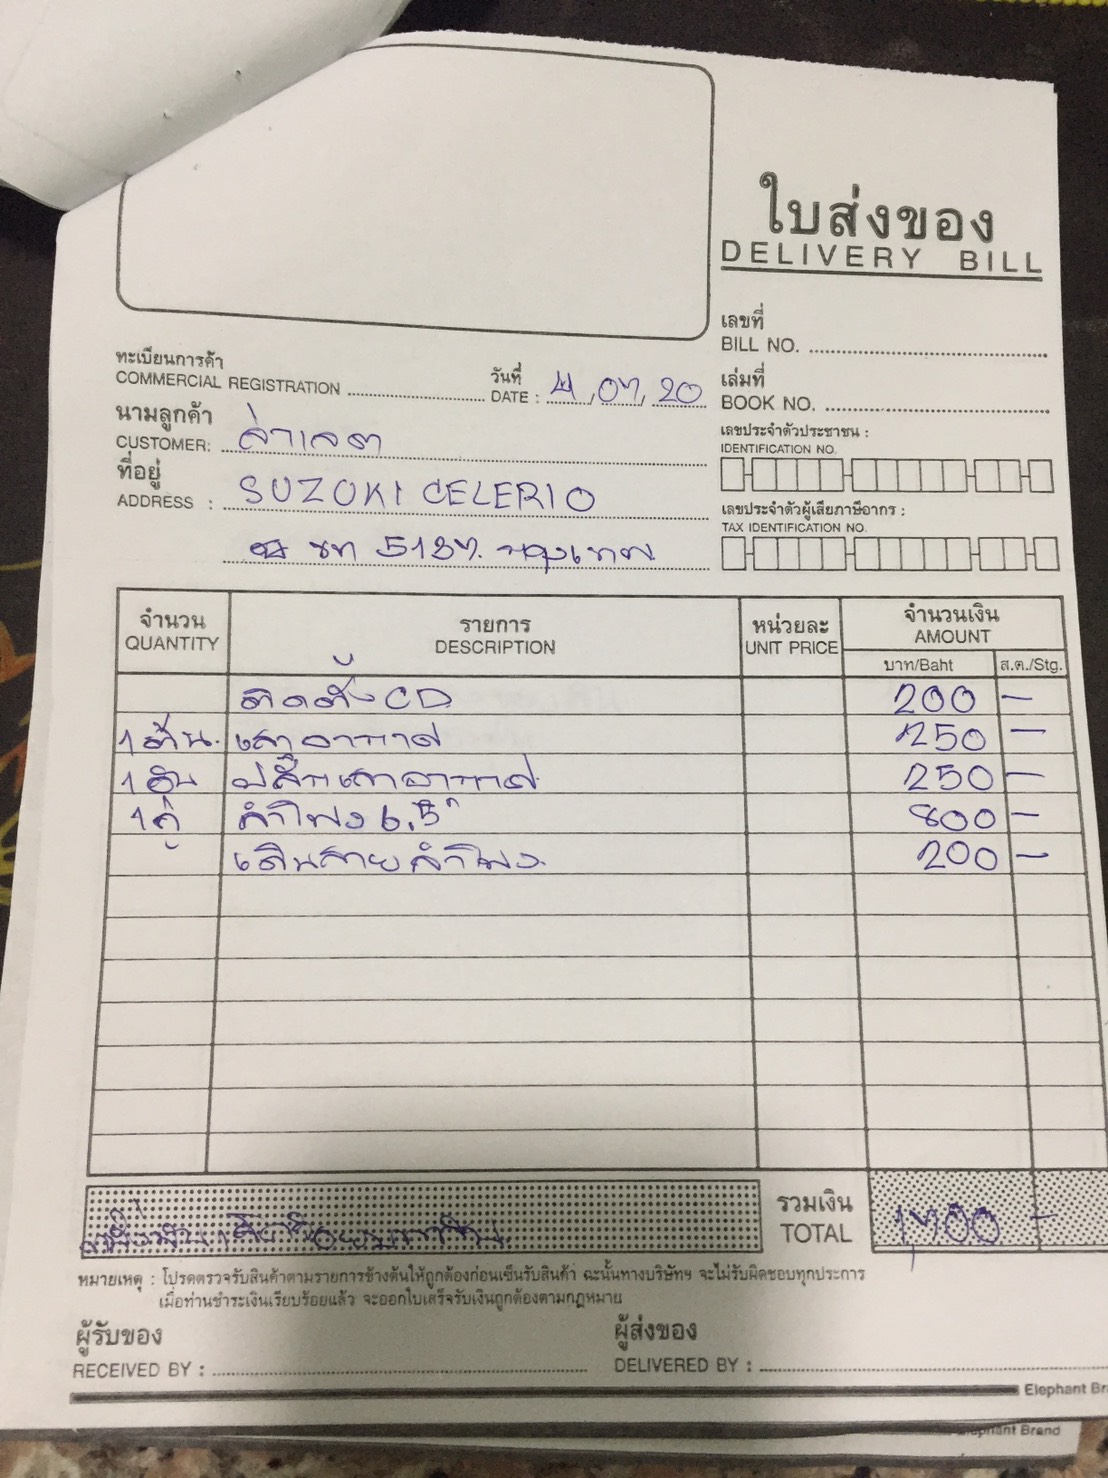 ใบส่งของ
DELIVERY BILL
เลขที่
BILL NO.
ทะเบียนการค้า
COMMERCIAL REGISTRATION
วันที่
DATE : 21, 07, 20
เล่มที่
BOOK NO.
นามลูกค้า
CUSTOMER:
เลขประจำตัวประชาชน :
IDENTIFICATION NO.
ที่อยู่
ADDRESS : SUZUKI CELERIO
เลขประจำตัวผู้เสียภาษีอากร :
TAX IDENTIFICATION NO.
ขท 5137. กรุงเทพ
จำนวน รายการ หน่วยละ จำนวนเงิน
QUANTITY DESCRIPTION UNIT PRICE AMOUNT
บาท/Baht ส.ต./Stg.
ติดตั้ง CD 200 —
1 ต้น. เสาอากาศ 250 —
1 อัน ปลั๊กเสาอากาศ 250 —
1 คู่ ลำโพง 6.5" 800 —
เดินสายลำโพง 200 —
รวมเงิน
TOTAL 1,700 —
หมายเหตุ : โปรดตรวจรับสินค้าตามรายการข้างต้นให้ถูกต้องก่อนเซ็นรับสินค้า ฉะนั้นทางบริษัทฯ จะไม่รับผิดชอบทุกประการ
เมื่อท่านชำระเงินเรียบร้อยแล้ว จะออกใบเสร็จรับเงินถูกต้องตามกฎหมาย
ผู้รับของ ผู้ส่งของ
RECEIVED BY : DELIVERED BY :
Elephant Bra
Elephant Brand